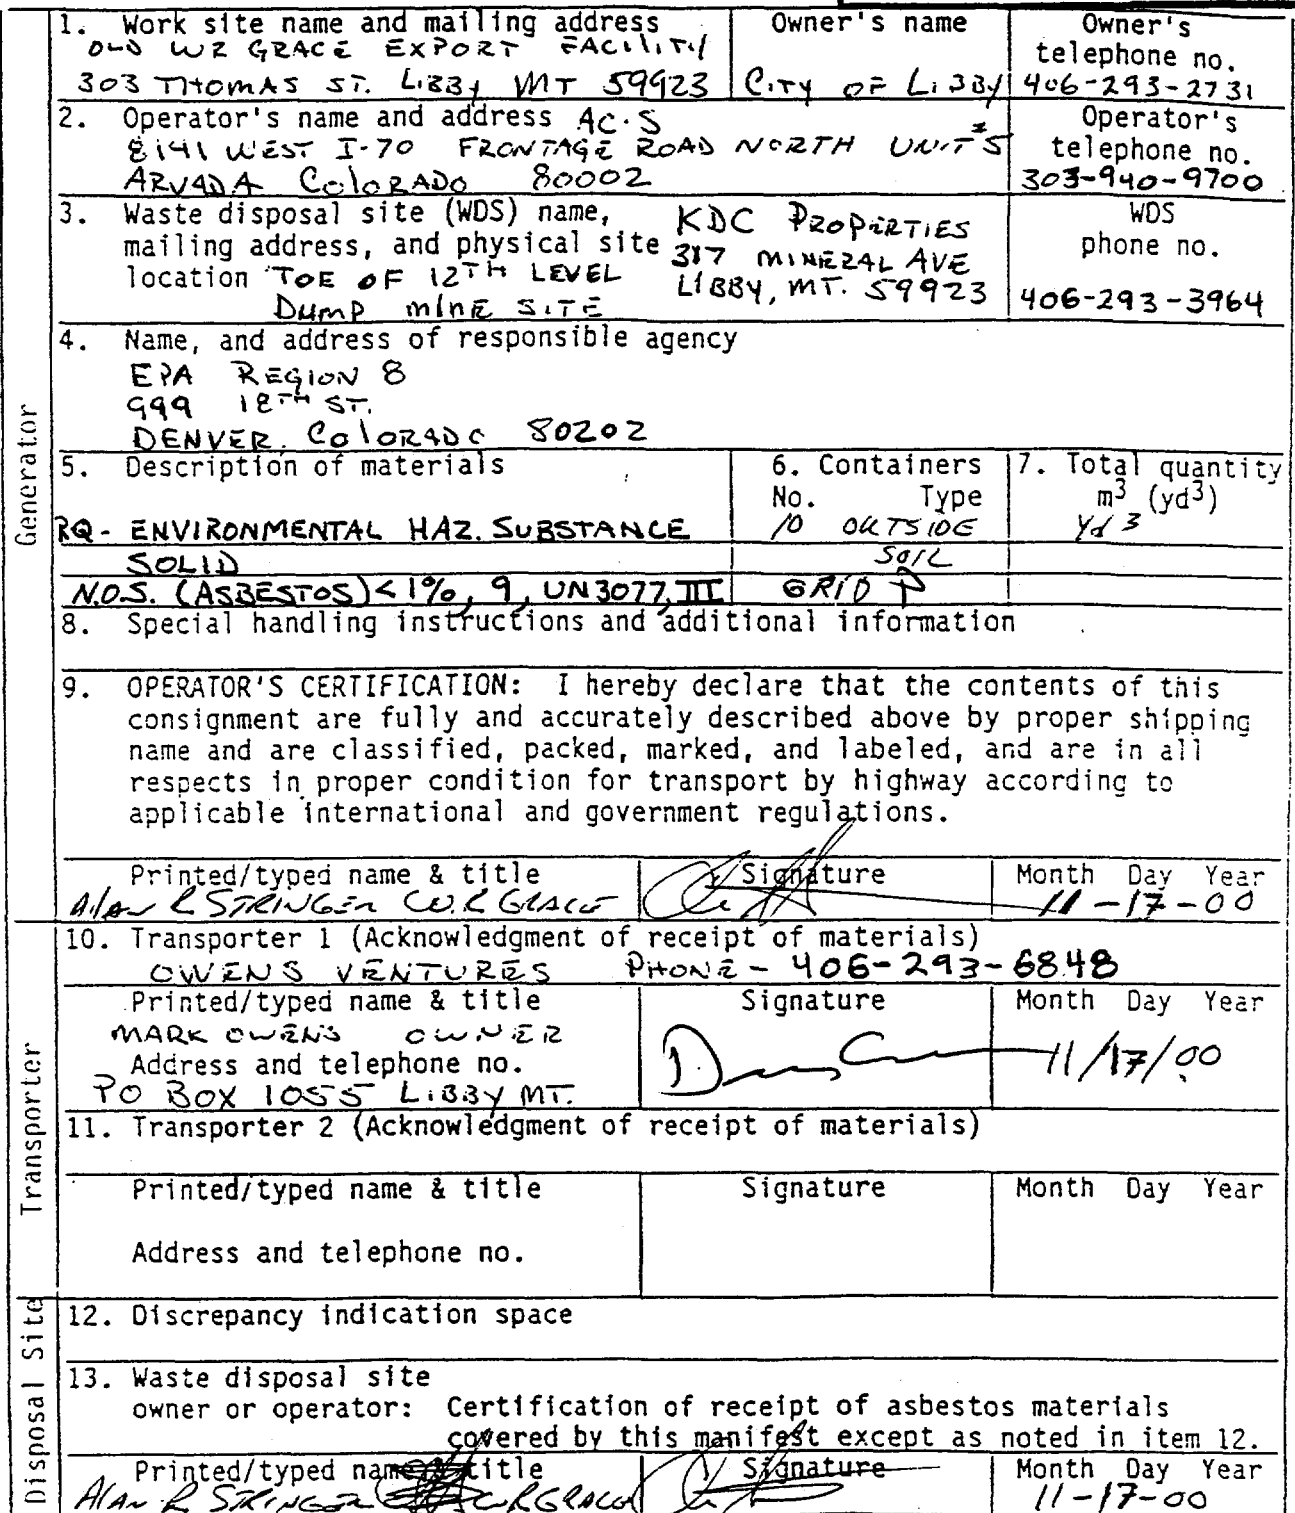 1. Work site name and mailing address
OLD WR GRACE EXPORT FACILITY
303 THOMAS ST. LIBBY MT 59923
Owner's name
CITY OF LIBBY
Owner's
telephone no.
406-293-2731
2. Operator's name and address ACS
8141 WEST I-70 FRONTAGE ROAD NORTH UNIT #5
ARVADA COLORADO 80002
Operator's
telephone no.
303-940-9700
3. Waste disposal site (WDS) name,
mailing address, and physical site
location TOE OF 12TH LEVEL
DUMP MINE SITE
KDC PROPERTIES
317 MINERAL AVE
LIBBY, MT. 59923
WDS
phone no.
406-293-3964
4. Name, and address of responsible agency
EPA REGION 8
999 18TH ST.
DENVER, COLORADO 80202
Generator
5. Description of materials
RQ - ENVIRONMENTAL HAZ. SUBSTANCE
SOLID
N.O.S. (ASBESTOS) < 1%, 9, UN3077, III
6. Containers
No. Type
10 OUTSIDE
SOIL
GRID ↑
7. Total quantity
m3 (yd3)
yd 3
8. Special handling instructions and additional information
9. OPERATOR'S CERTIFICATION: I hereby declare that the contents of this
consignment are fully and accurately described above by proper shipping
name and are classified, packed, marked, and labeled, and are in all
respects in proper condition for transport by highway according to
applicable international and government regulations.
Printed/typed name & title
Alan R STRINGER W.R GRACE
Signature
Month Day Year
11-17-00
Transporter
10. Transporter 1 (Acknowledgment of receipt of materials)
OWENS VENTURES PHONE - 406-293-6848
Printed/typed name & title
MARK OWENS OWNER
Address and telephone no.
PO BOX 1055 LIBBY MT.
Signature
Month Day Year
11/17/00
11. Transporter 2 (Acknowledgment of receipt of materials)
Printed/typed name & title
Signature
Month Day Year
Address and telephone no.
Disposal Site
12. Discrepancy indication space
13. Waste disposal site
owner or operator: Certification of receipt of asbestos materials
covered by this manifest except as noted in item 12.
Printed/typed name & title
Alan R STRINGER WRGRACE
Signature
Month Day Year
11-17-00